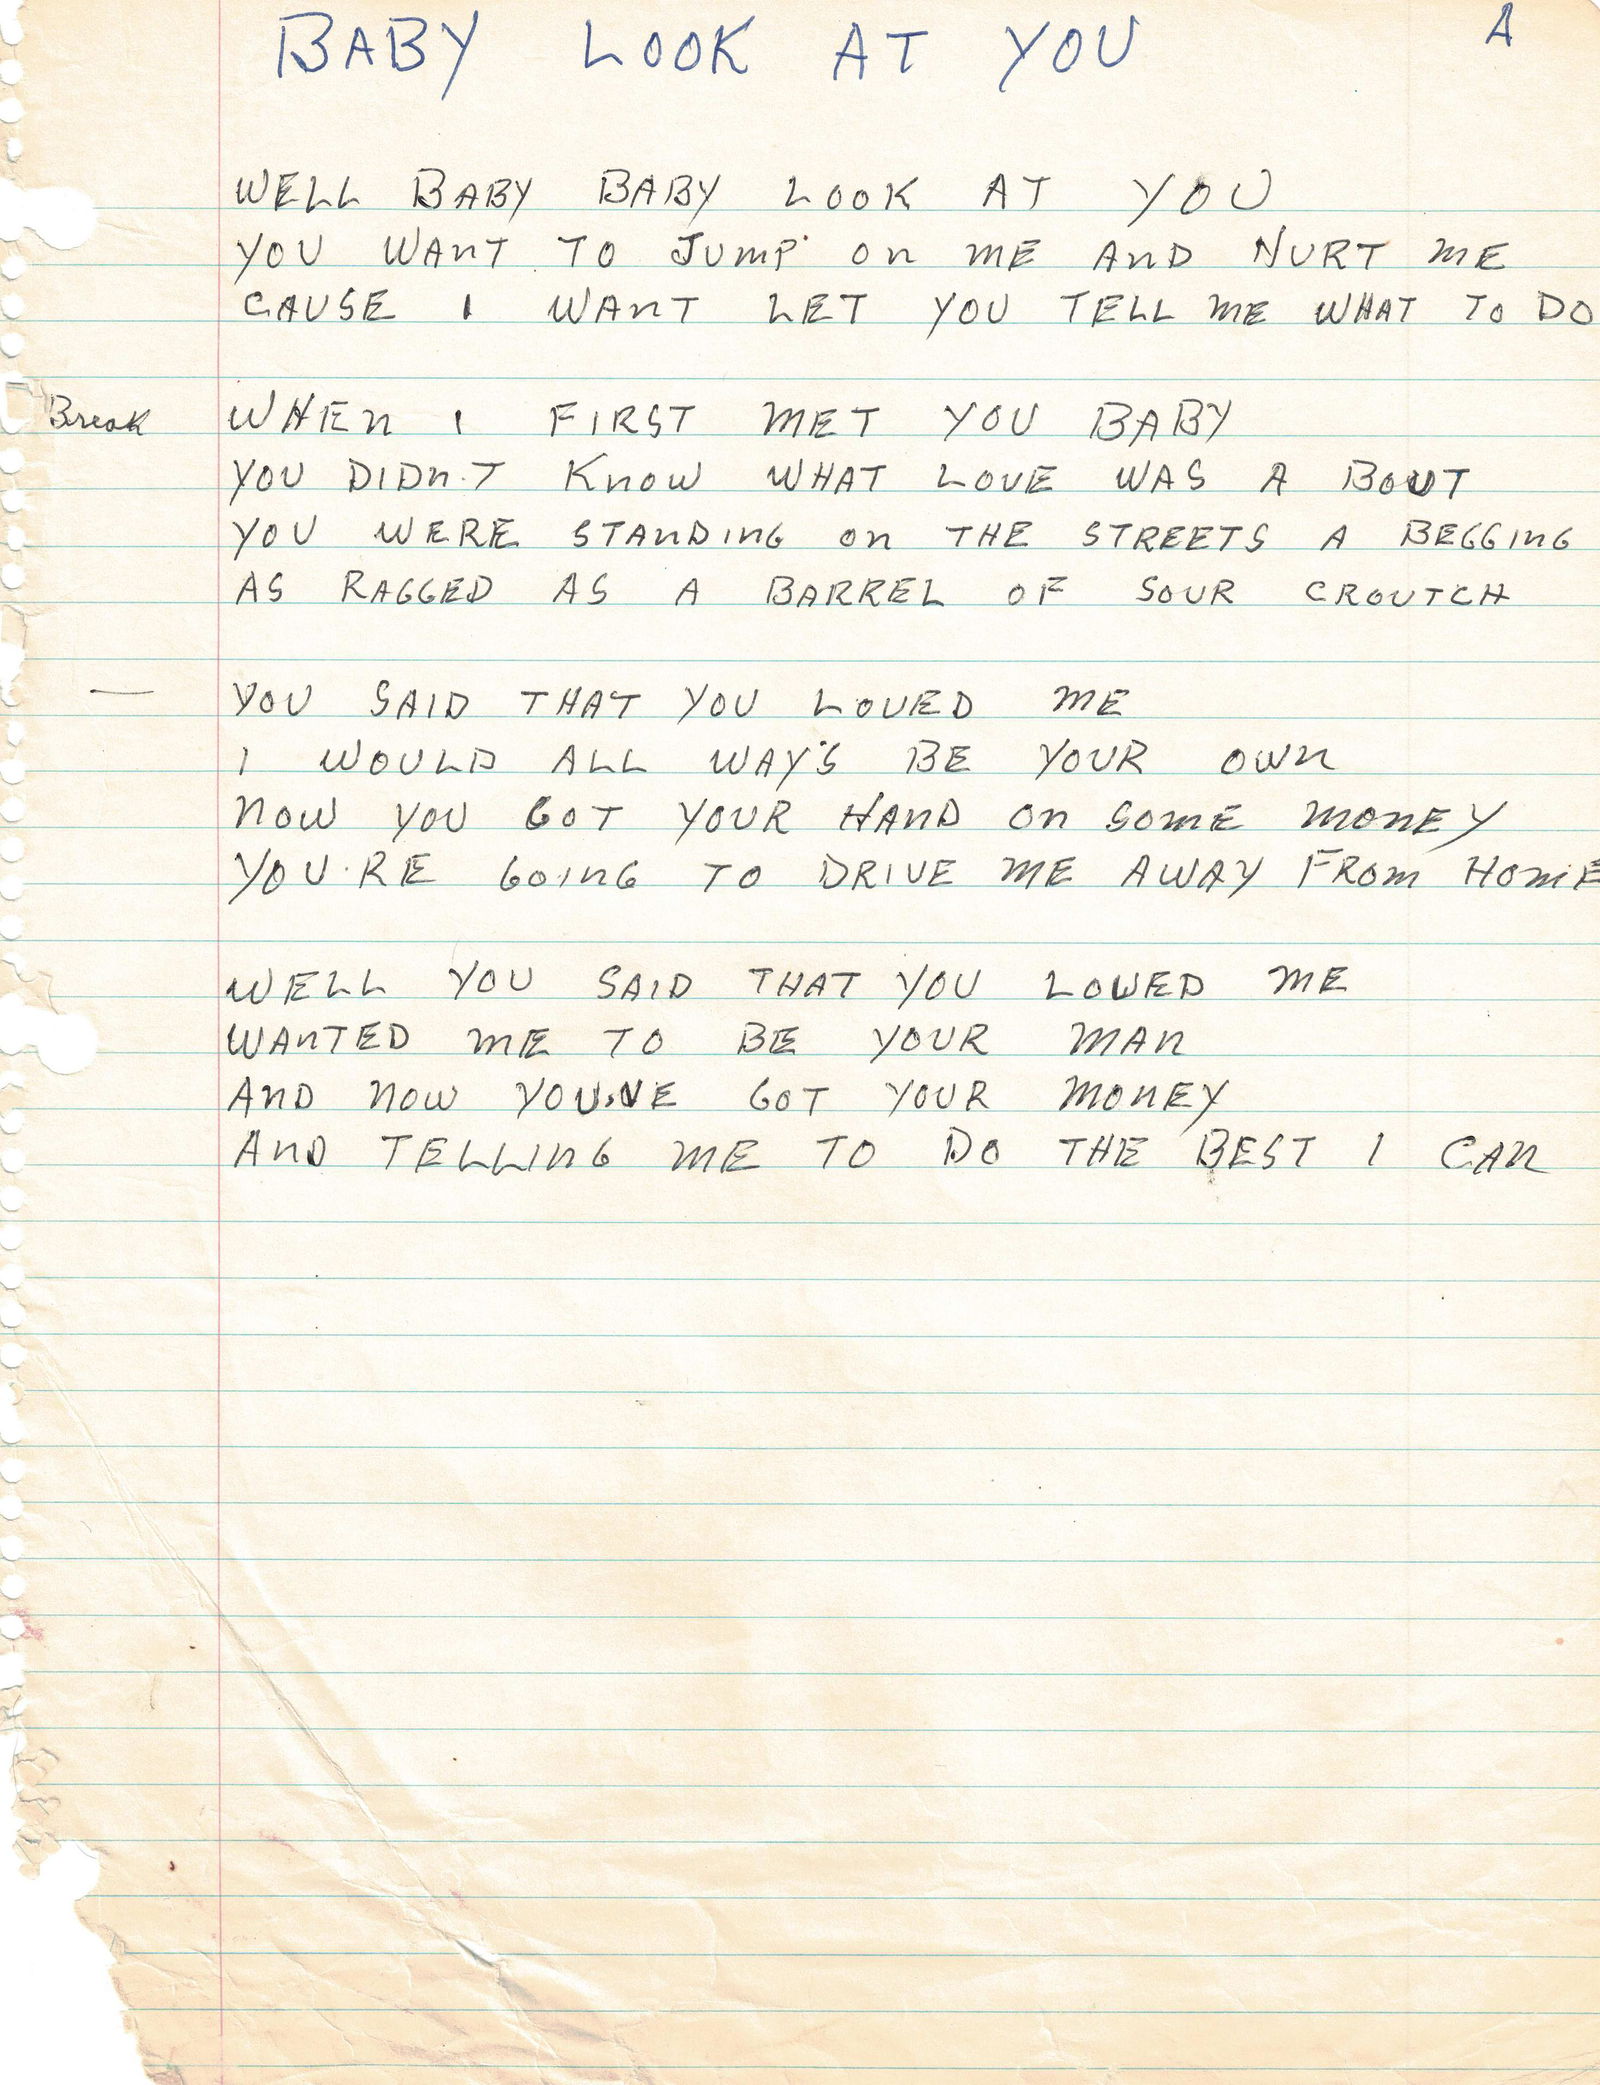 BABY LOOK AT YOU A
WELL BABY BABY LOOK AT YOU
YOU WANT TO JUMP ON ME AND HURT ME
CAUSE I WANT LET YOU TELL ME WHAT TO DO
Break WHEN I FIRST MET YOU BABY
YOU DIDN'T KNOW WHAT LOVE WAS A BOUT
YOU WERE STANDING ON THE STREETS A BEGGING
AS RAGGED AS A BARREL OF SOUR CROUTCH
— YOU SAID THAT YOU LOVED ME
I WOULD ALL WAY'S BE YOUR OWN
NOW YOU GOT YOUR HAND ON SOME MONEY
YOU'RE GOING TO DRIVE ME AWAY FROM HOME
WELL YOU SAID THAT YOU LOVED ME
WANTED ME TO BE YOUR MAN
AND NOW YOU'VE GOT YOUR MONEY
AND TELLING ME TO DO THE BEST I CAN